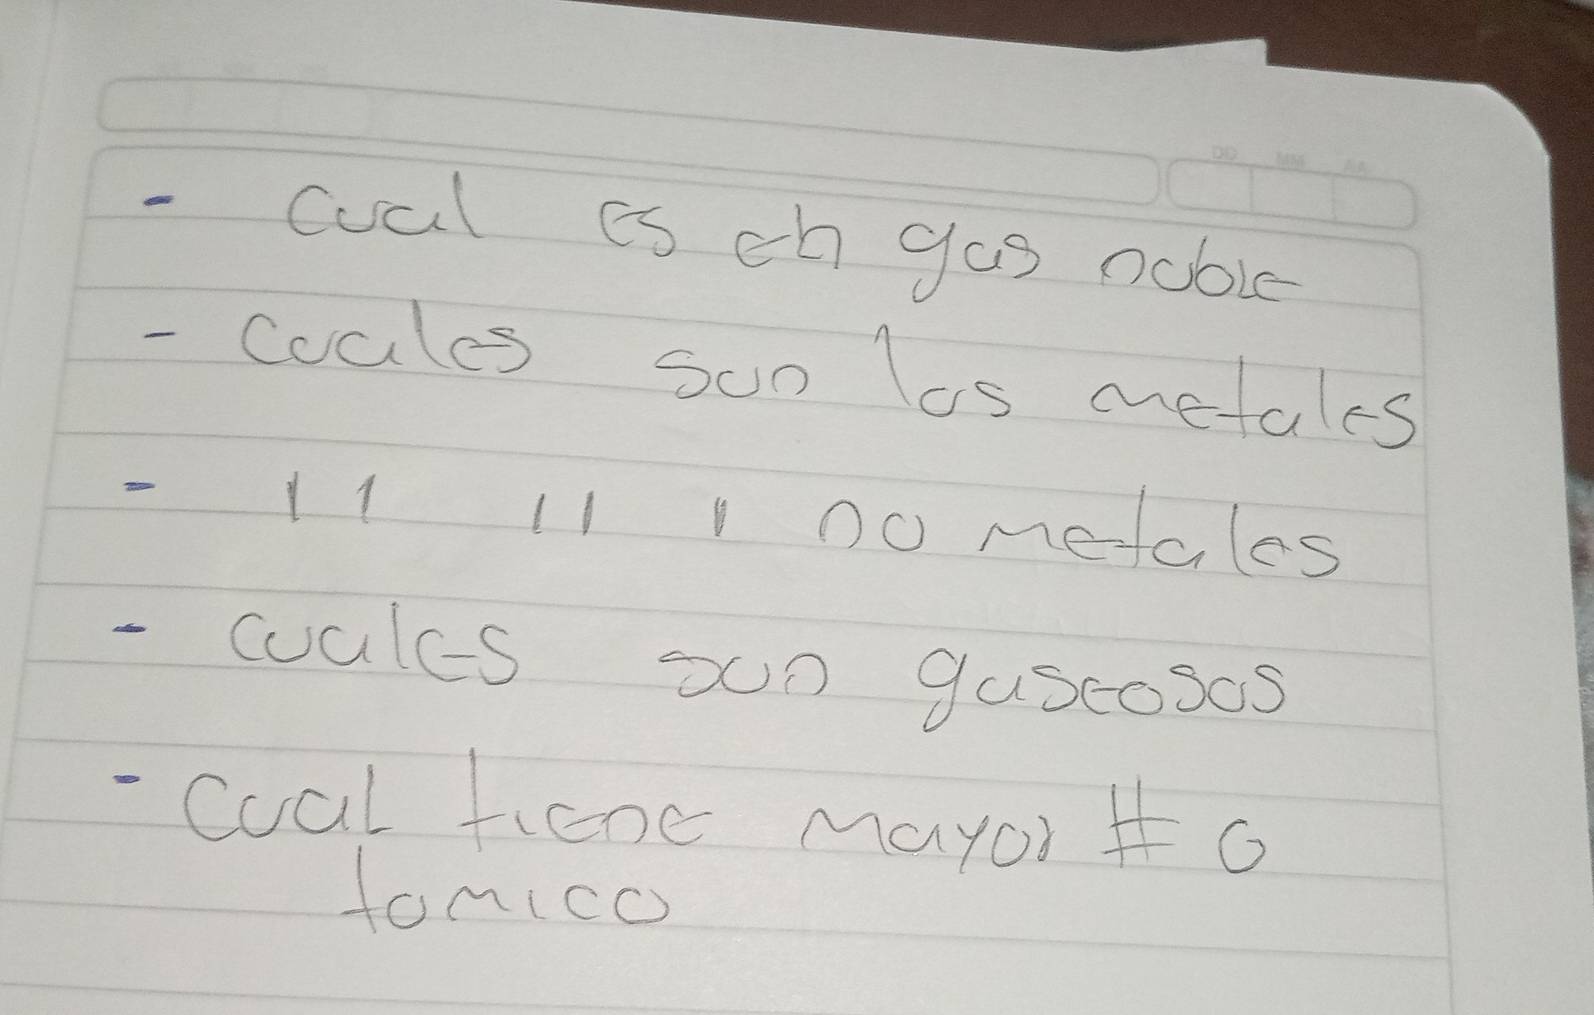 DD MM AA
- Cual es eh gas noble
- Cuales son los metales
- 11 11 1 no metales
- cuales son gaseosos
- Cual tiene mayor # a
tomico